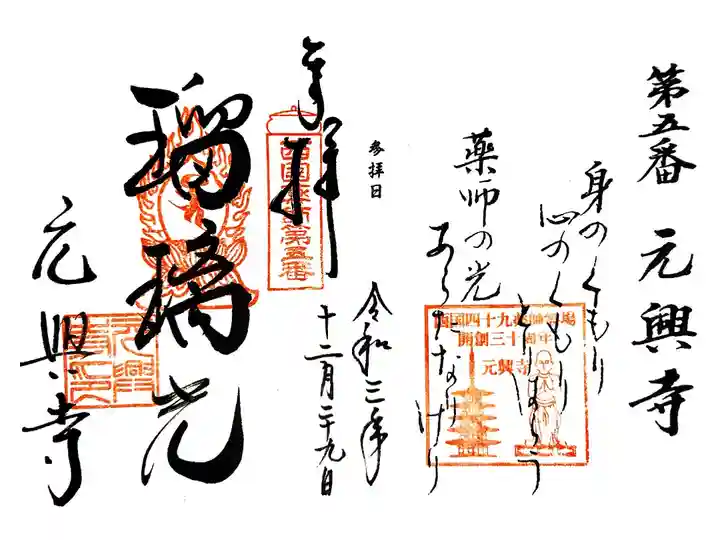 第五番 元興寺
身のくもり
心のくもり
とりはらう
薬師の光
あらたなりけり
西国四十九薬師霊場
開創三十周年
元興寺
参拝日
令和三年
十二月二十九日
奉拝
西国薬師第五番
瑠璃光
元興寺